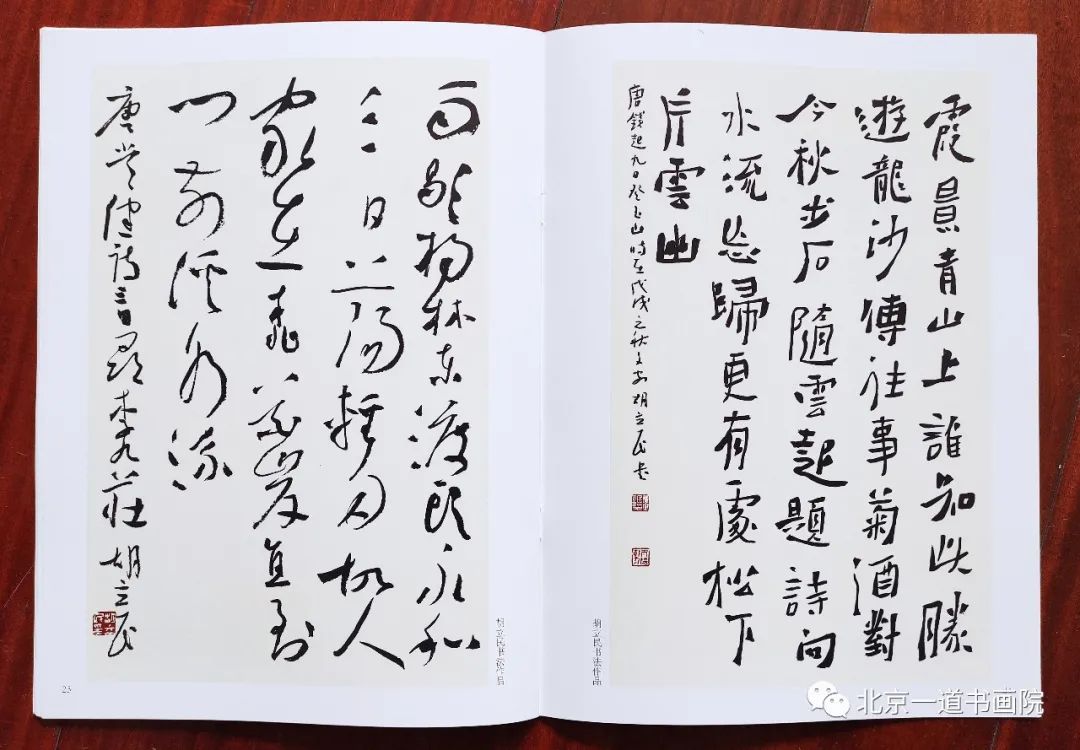 雨歇楊林東渡頭永和
三日蕩輕舟故人
家在桃花岸直到
門前溪水流
唐常建詩三日尋李九莊 胡立民
胡立民书法作品
23
霞景青山上誰知此勝
遊龍沙傳往事菊酒對
今秋步石隨雲起題詩向
水流忘歸更有處松下
片雲幽
唐錢起九日登玉山時在戊戌之秋 胡立民書
胡立民书法作品
北京一道书画院